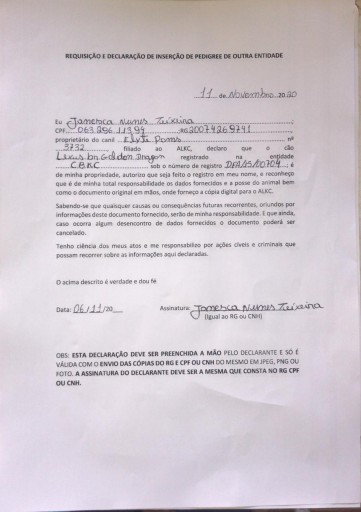 REQUISIÇÃO E DECLARAÇÃO DE INSERÇÃO DE PEDIGREE DE OUTRA ENTIDADE
11 de Novembro 2020
Eu Jamesca Nunes Teixeira
CPF 063 296 113 94 RG 20074269741
proprietário do canil Elyte Poms nº
3732 filiado ao ALKC, declaro que o cão
Golden Dragon registrado na entidade
CBKC sob o número de registro é
de minha propriedade, autorizo que seja feito o registro em meu nome, e reconheço
que é de minha total responsabilidade os dados fornecidos e a posse do animal bem
como o documento original em mãos, onde forneço a cópia digital para o ALKC.
Sabendo-se que quaisquer causas ou consequências futuras recorrentes, oriundos por
informações deste documento fornecido, serão de minha responsabilidade. E que ainda,
caso ocorra algum desencontro de dados fornecidos o documento poderá ser
cancelado.
Tenho ciência dos meus atos e me responsabilizo por ações cíveis e criminais que
possam recorrer sobre as informações aqui declaradas.
O acima descrito é verdade e dou fé
Data: 06/11/20 Assinatura: Jamesca Nunes Teixeira
(Igual ao RG ou CNH)
OBS: ESTA DECLARAÇÃO DEVE SER PREENCHIDA A MÃO PELO DECLARANTE E SÓ É
VÁLIDA COM O ENVIO DAS CÓPIAS DO RG E CPF OU CNH DO MESMO EM JPEG, PNG OU
FOTO. A ASSINATURA DO DECLARANTE DEVE SER A MESMA QUE CONSTA NO RG CPF
OU CNH.